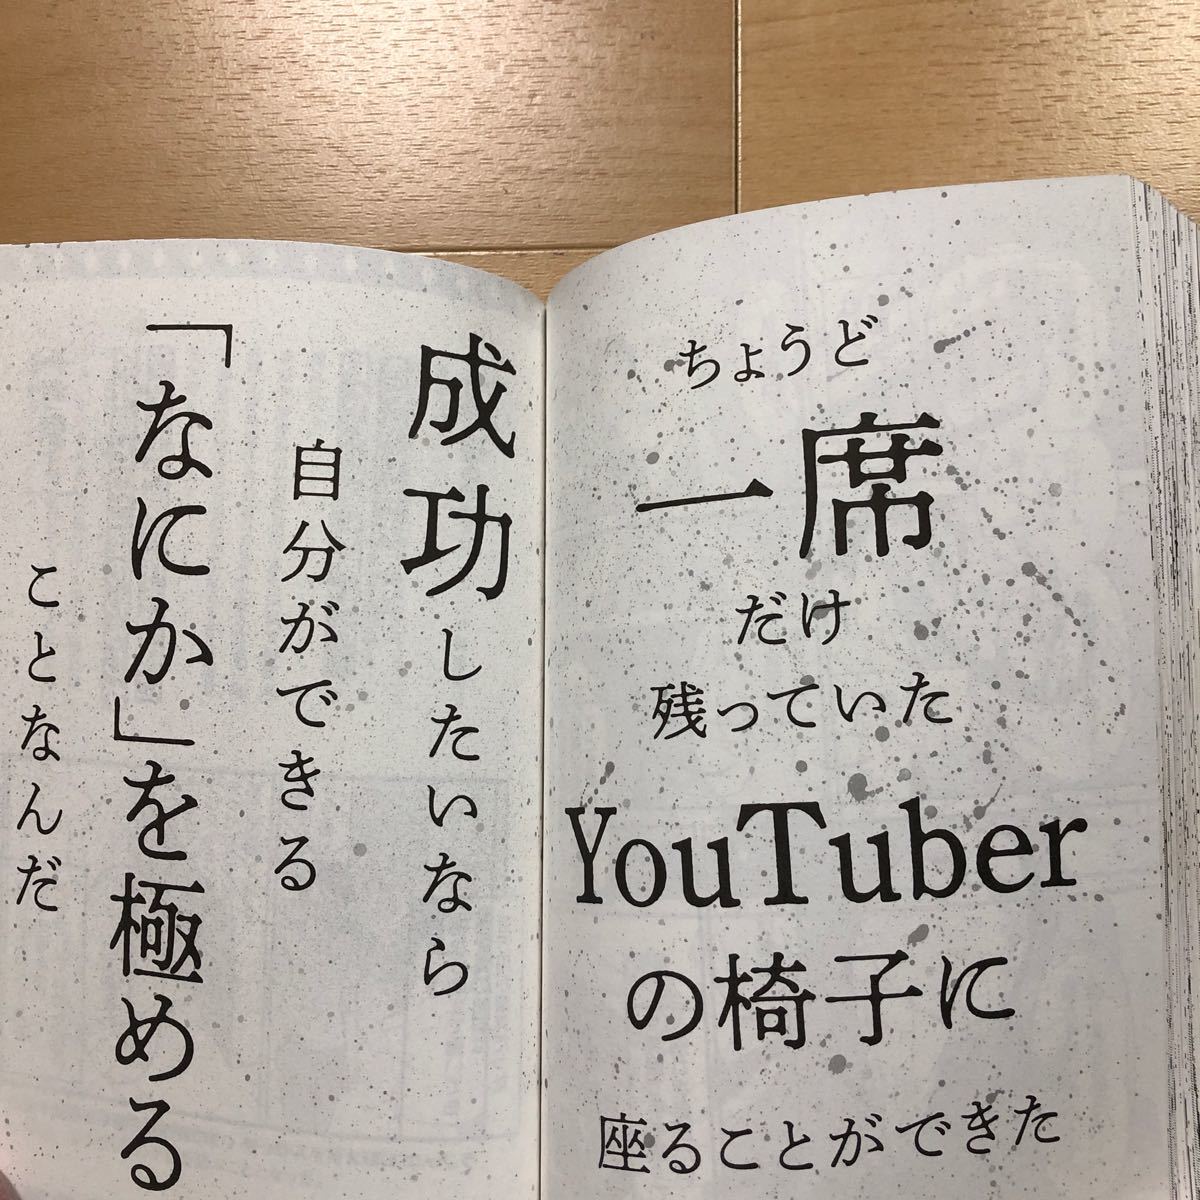 ちょうど
一席
だけ
残っていた
YouTuber
の椅子に
座ることができた
成功したいなら
自分ができる
「なにか」を極める
ことなんだ